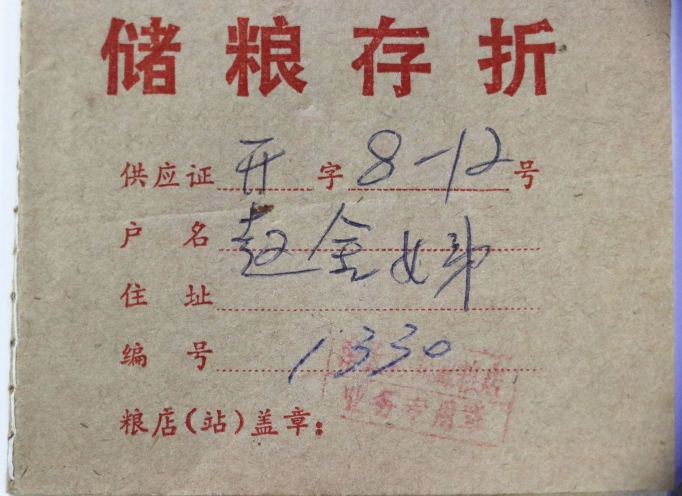 储粮存折
供应证 开 字 8-12 号
户名 赵金娣
住址
编号 1330
粮店(站)盖章:
业务专用章